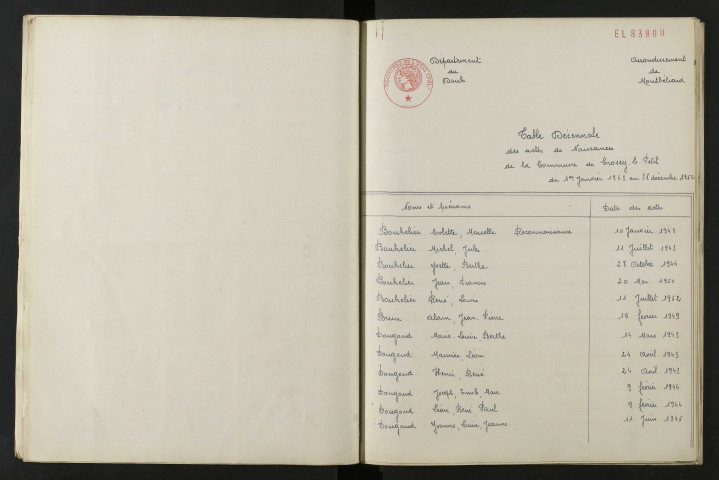 EL 83900
Département
du
Doubs
Arrondissement
de
Montbéliard
Table Décennale
des actes de Naissances
de la Commune de Crosey le Petit
du 1er Janvier 1943 au 31 décembre 1952
Noms et prénoms Date des actes
Bouhelier Colette, Marcelle Reconnaissance 10 Janvier 1943
Bouhelier Michel, Jules 11 Juillet 1943
Bouhelier Yvette, Berthe 28 Octobre 1944
Bouhelier Jean, Francis 20 Mai 1950
Bouhelier René, Louis 11 Juillet 1952
Brun Alain, Jean-Pierre 16 février 1949
Dougoud Marie-Louise Berthe 14 Mars 1943
Dougoud Maurice Léon 24 Avril 1943
Dougoud Henri, René 24 Avril 1943
Dougoud Joseph, Emile, Marc 9 février 1944
Dougoud Léon, René Paul 9 février 1944
Dougoud Yvonne, Jeanne 11 Juin 1945